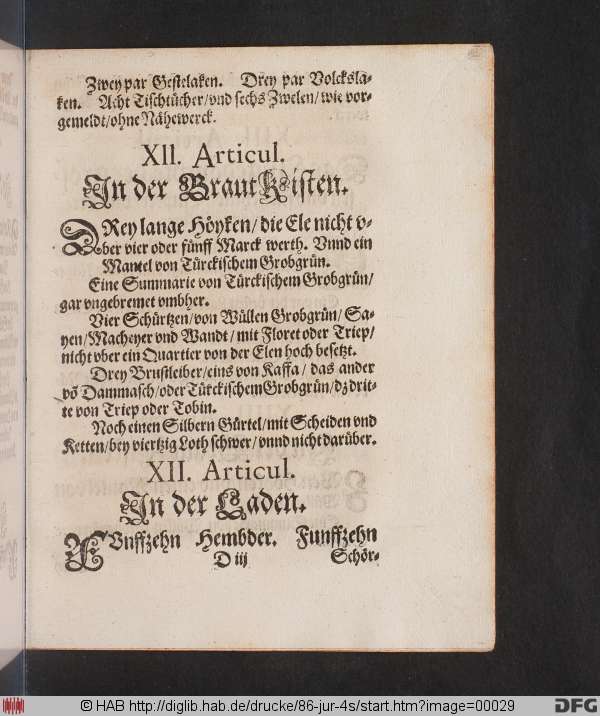 Zwey par Gestelaken. Drey par Volcksla-
ken. Acht Tischtücher/vnd sechs Zwelen/wie vor-
gemeldt/ohne Nähewerck.
XII. Articul.
In der BrautKisten.
DRey lange Höyken/die Ele nicht v-
ber vier oder fünff Marck werth. Vnnd ein
Mantel von Türckischem Grobgrün.
Eine Summarie von Türckischem Grobgrün/
gar vngebremet vmbher.
Vier Schürtzen/von Wüllen Grobgrün/Sa-
yen/Macheyer vnd Wandt/mit Floret oder Triep/
nicht vber ein Quartier von der Elen hoch besetzt.
Drey Brustleiber/eins von Kaffa/das ander
võ Dammasch/oder Türckischem Grobgrün/dz drit-
te von Triep oder Tobin.
Noch einen Silbern Gürtel/mit Scheiden vnd
Ketten/bey viertzig Loth schwer/vnnd nicht darüber.
XII. Articul.
In der Laden.
FVnffzehn Hembder. Funffzehn
D iij Schör-
© HAB http://diglib.hab.de/drucke/86-jur-4s/start.htm?image=00029
DFG